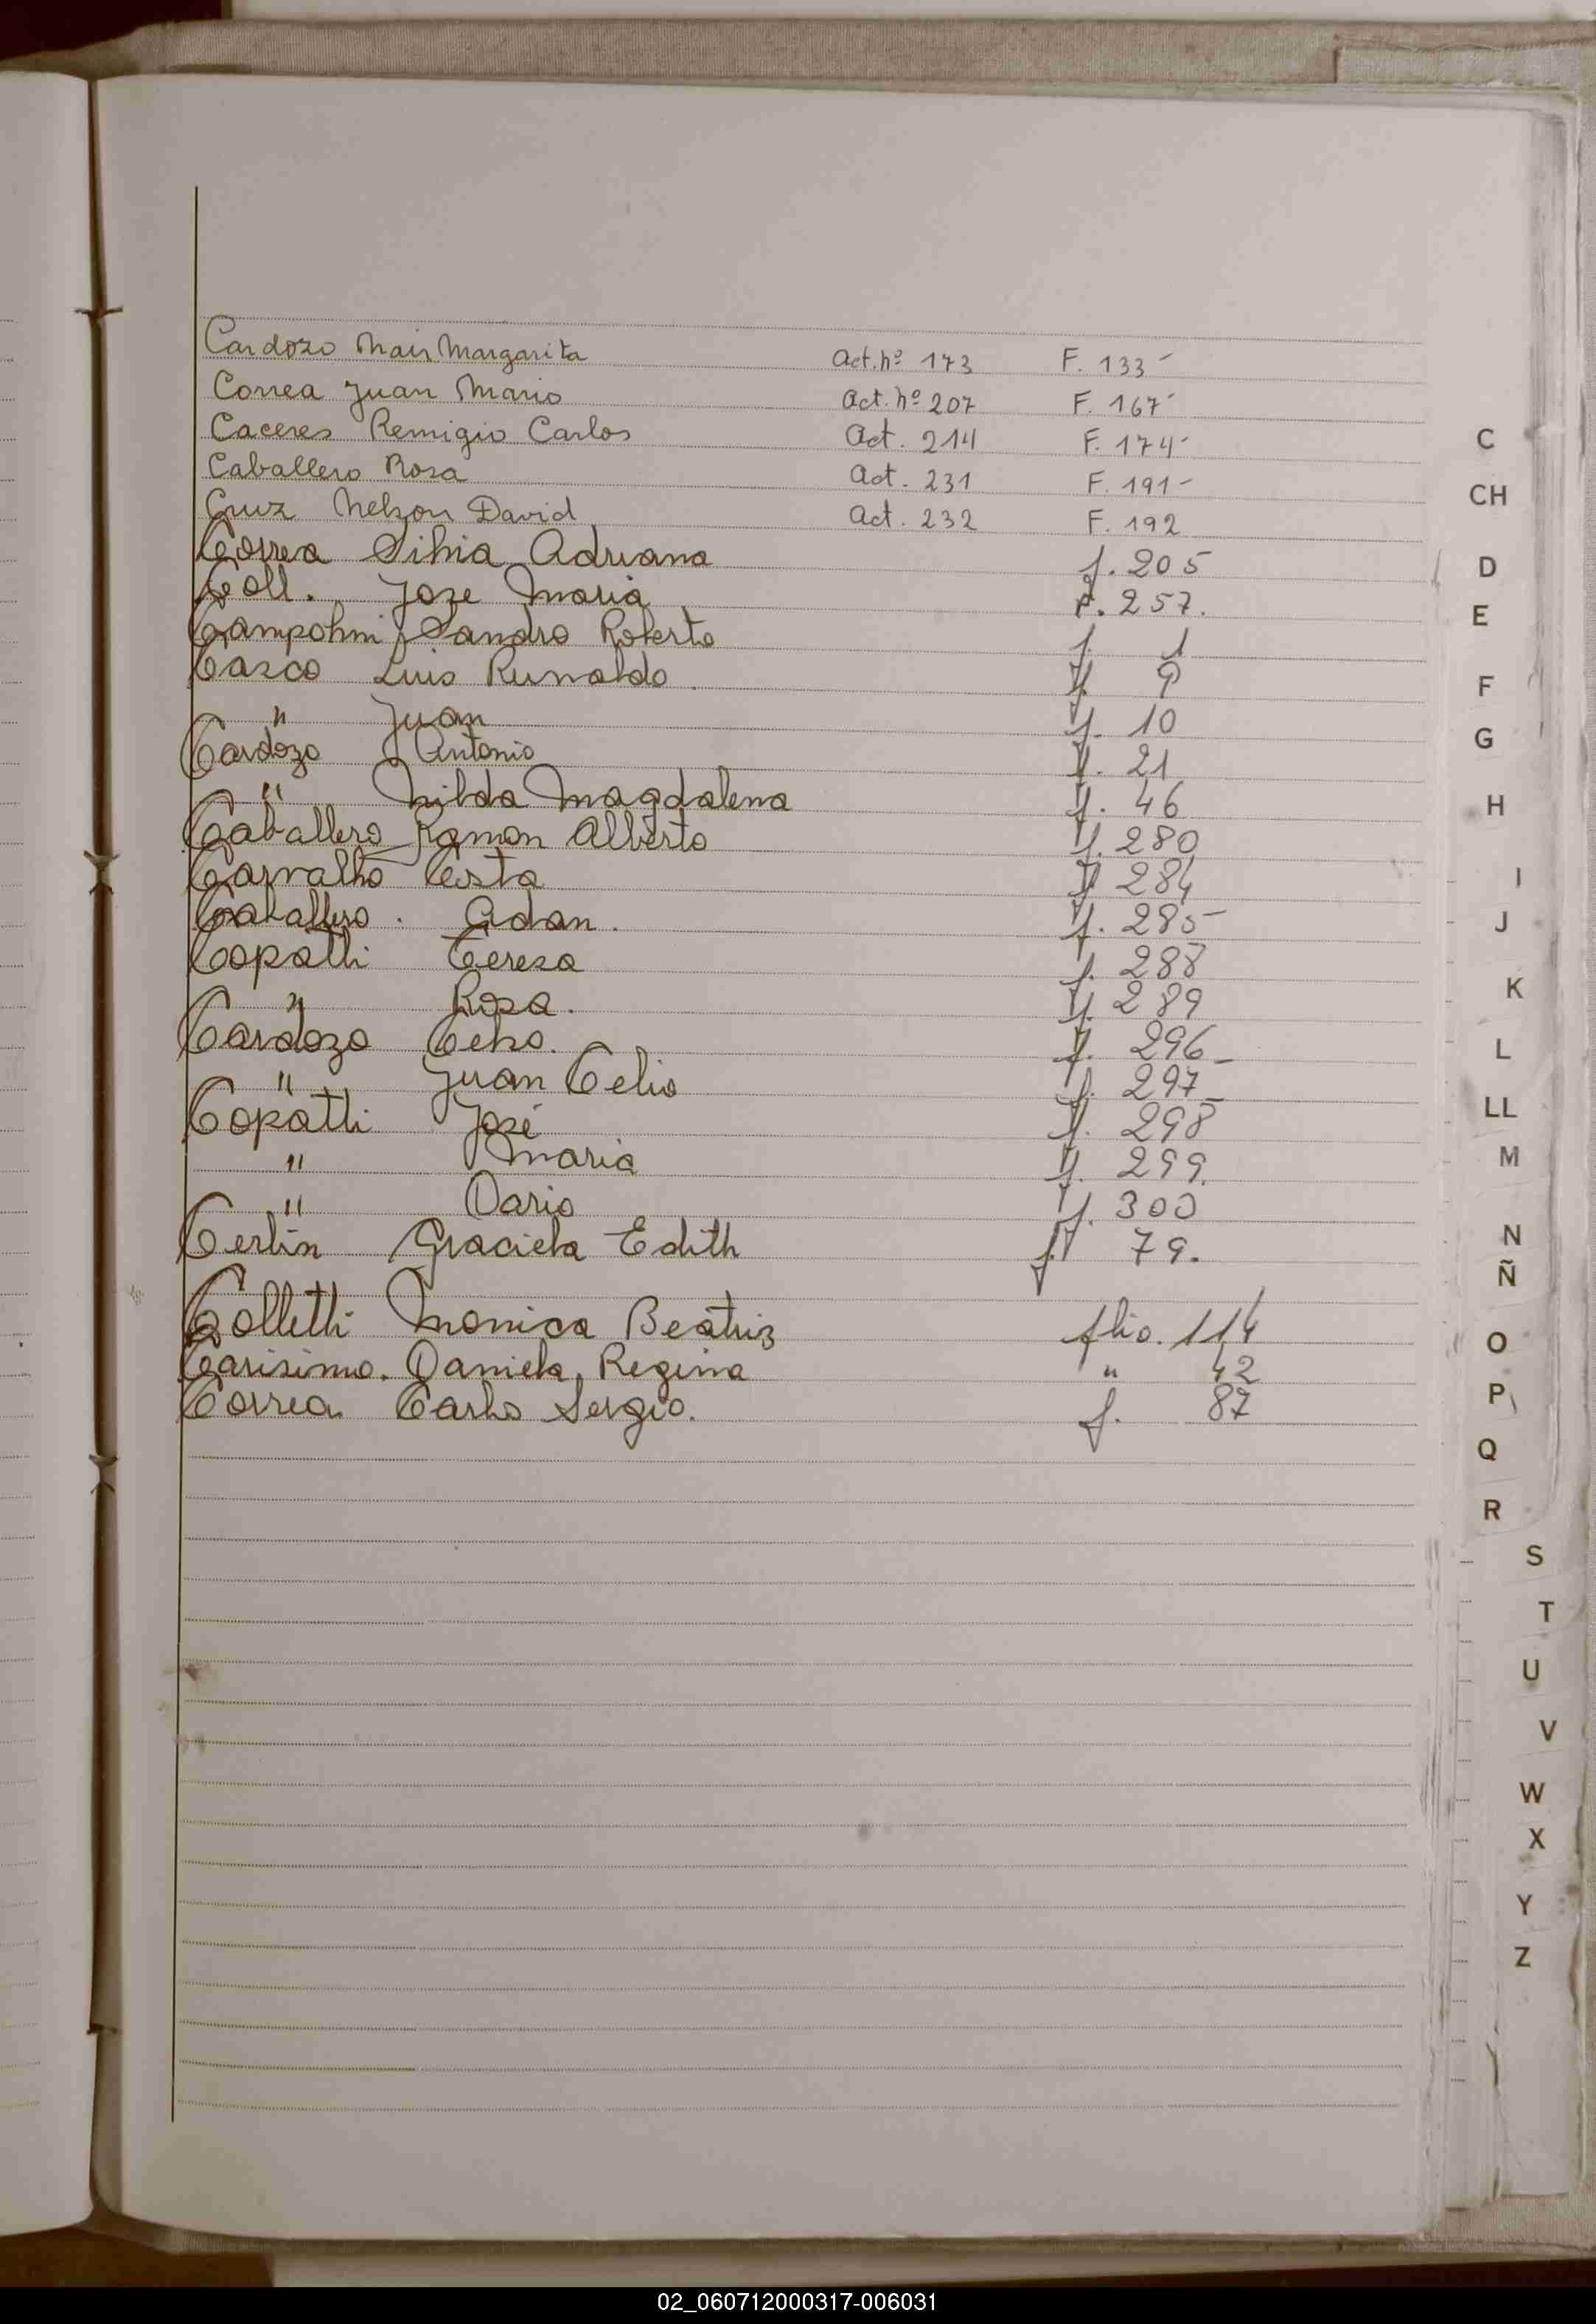 Cardozo Nair Margarita Act. nº 173 F. 133-
Correa Juan Mario Act. nº 207 F. 167-
Caceres Remigio Carlos Act. 214 F. 174-
Caballero Rosa Act. 231 F. 191-
Cruz Nelson David Act. 232 F. 192
Correa Silvia Adriana f. 205
Coll. Jose Maria F. 257.
Campolmi Sandro Roberto f. 1
Casco Luis Reinaldo f. 9
" Juan f. 10
Cardozo Antonio f. 21
" Nilda Magdalena f. 46
Caballero Ramon Alberto f. 280
Carvalho Costa f. 284
Caballero. Adan. f. 285-
Copatti Teresa f. 288
" Rosa. f. 289
Cardozo Celso. f. 296-
" Juan Celio f. 297-
Copatti José f. 298
" Maria f. 299.
" Dario f. 300
Cerlin Graciela Edith f. 79.
Colletti Monica Beatriz flio. 114
Carisimo. Daniela Regina " 42
Correa Carlos Sergio. f. 87
C
CH
D
E
F
G
H
I
J
K
L
LL
M
N
Ñ
O
P
Q
R
S
T
U
V
W
X
Y
Z
02_060712000317-006031